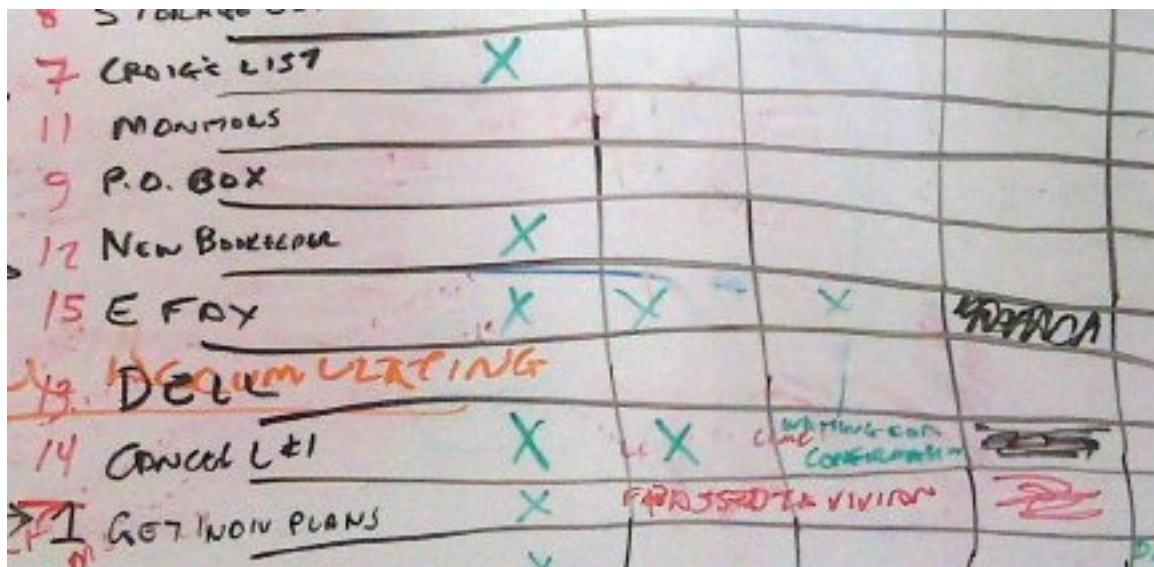 8 STORAGE
7 CRAIG'S LIST X
11 MONITORS
9 P.O. BOX
12 NEW BOOKEEPER X
15 E FAX X X X
13. DELL
14 CANCEL L#1 X X WAITING FOR
CONFIRMATION
1 GET INDIV PLANS X VIVIAN